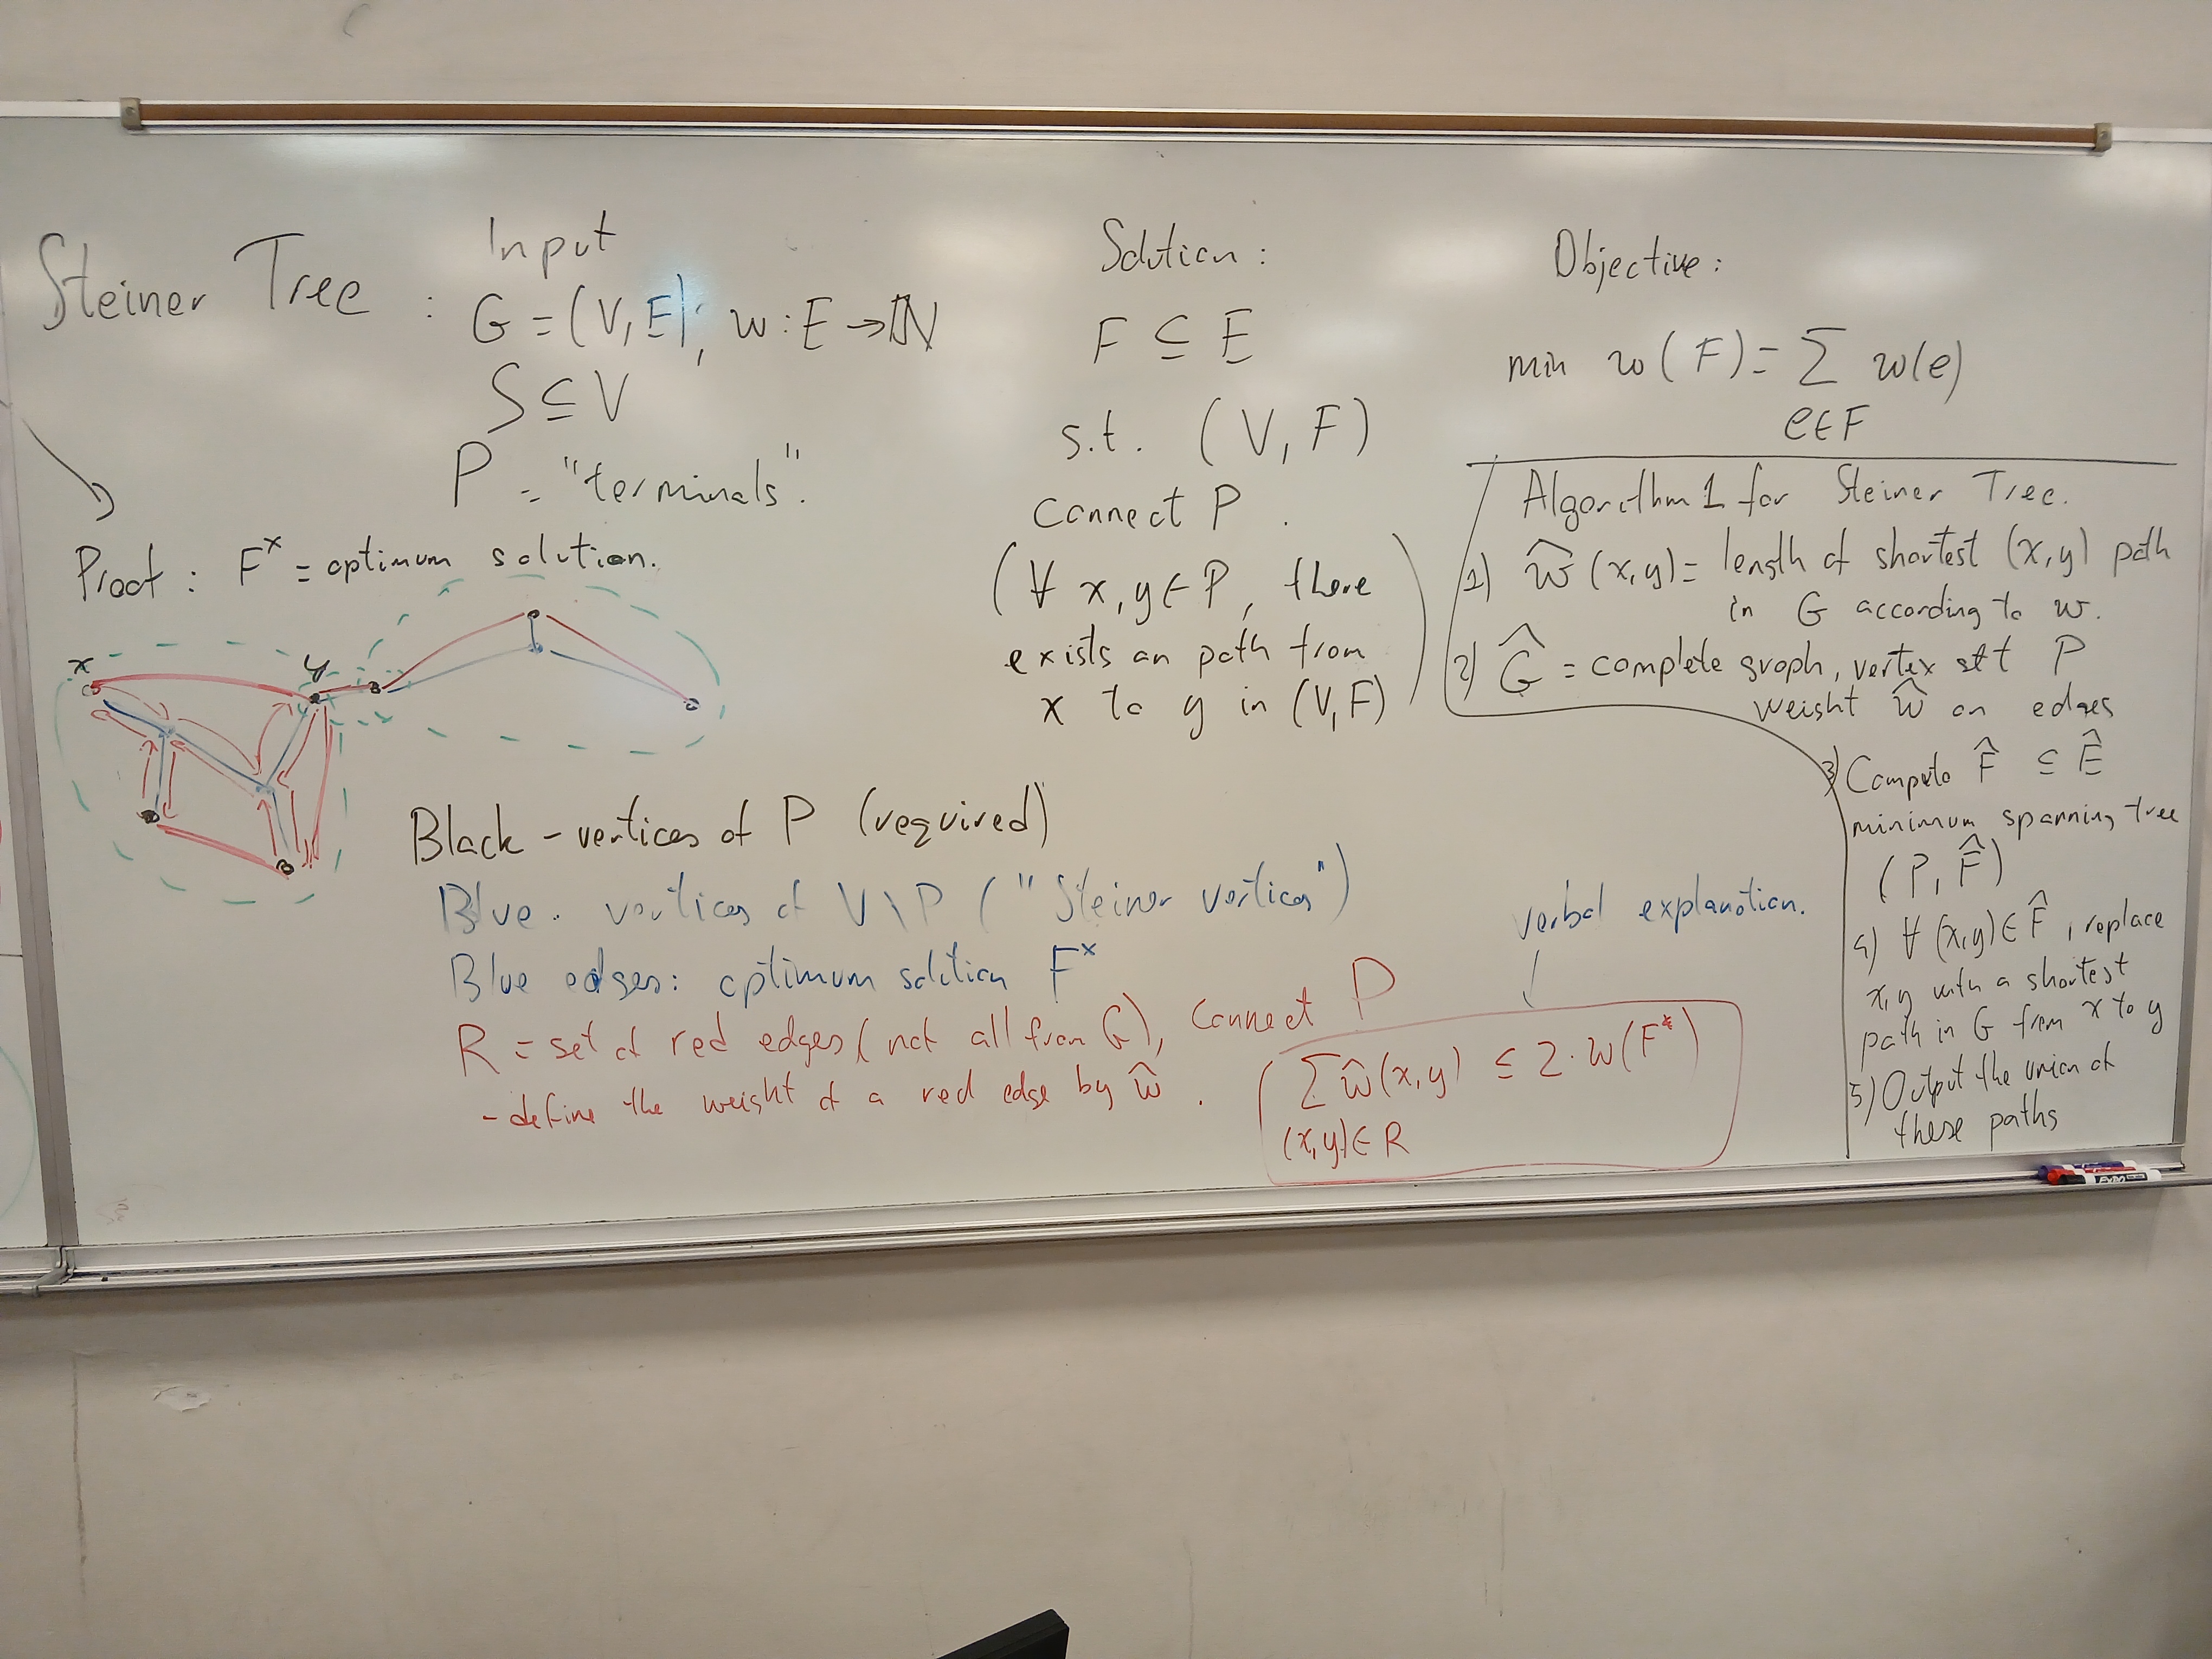 Steiner Tree :
Input
G = (V, E); w : E → ℕ
S ⊆ V
P = "terminals".
Solution :
F ⊆ E
s.t. (V, F)
connect P .
(∀ x, y ∈ P, there
exists an path from
x to y in (V, F))
Objective :
min w(F) = ∑ w(e)
e∈F
Algorithm 1 for Steiner Tree.
1) ŵ(x,y) = length of shortest (x,y) path
in G according to w.
2) Ĝ = complete graph, vertex set P
weight ŵ on edges
3) Compute F̂ ⊆ Ê
minimum spanning tree
(P, F̂)
4) ∀ (x,y) ∈ F̂, replace
x,y with a shortest
path in G from x to y
5) Output the union of
these paths
Proof : Fˣ = optimum solution.
x
y
Black - vertices of P (required)
Blue . vertices of V \ P ("Steiner vertices")
Blue edges: optimum solution Fˣ
R = set of red edges (not all from G), connect P
- define the weight of a red edge by ŵ .
verbal explanation.
∑ ŵ(x,y) ≤ 2 · w(F*)
(x,y)∈R